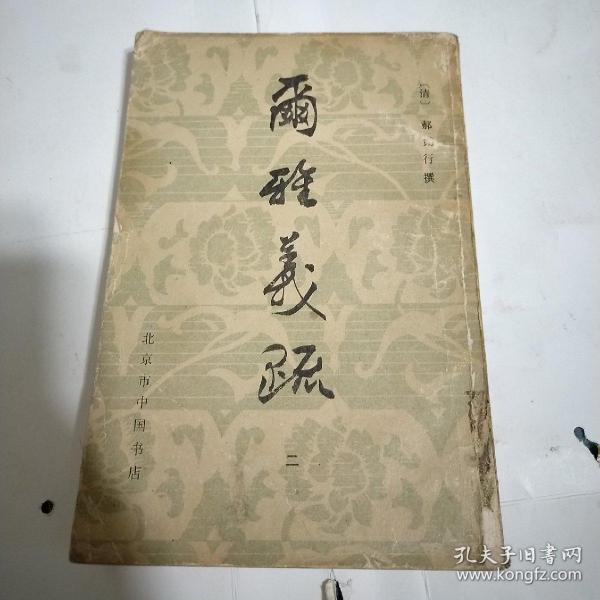 〔清〕郝懿行撰
爾雅義疏
二
北京市中国书店
孔夫子旧書网
www.kongfz.com